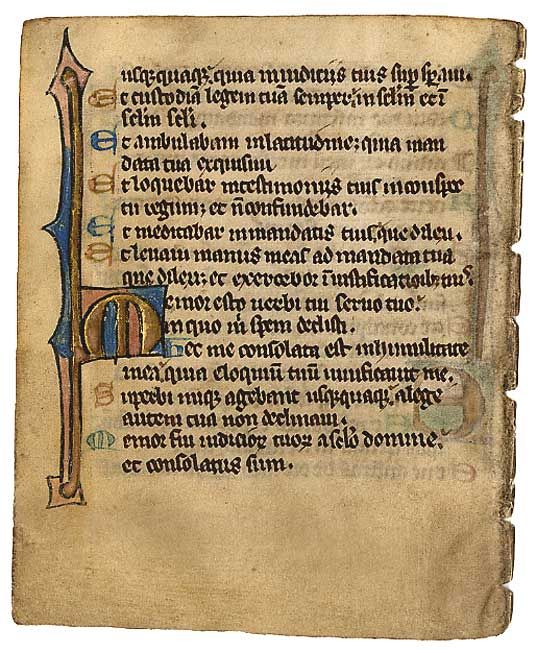 usq;quaq; quia in iudiciis tuis sup̲ sp̲aui.
Et custodiā legem tuā semper; in sclm̄ et ī
sclm̄ scli.
Et ambulabam in latitudine; quia man
data tua exquisiui
Et loquebar in testimoniis tuis in conspec
tu regum; et n̄ confundebar.
Et meditabar in mandatis tuis, que dilexi.
Et leuaui manus meas ad mandata tua
que dilexi; et exercebor ī iustificatiōib; tuis.
Memor esto uerbi tui seruo tuo:
in quo m̄ spem dedisti.
Hec me consolata est in humilitate
mea; quia eloquiū tuū uiuificauit me.
Superbi iniq; agebant usq;quaq; a lege
autem tua non declinaui.
Memor fui iudicioꝝ tuoꝝ a sclo domine:
et consolatus sum.